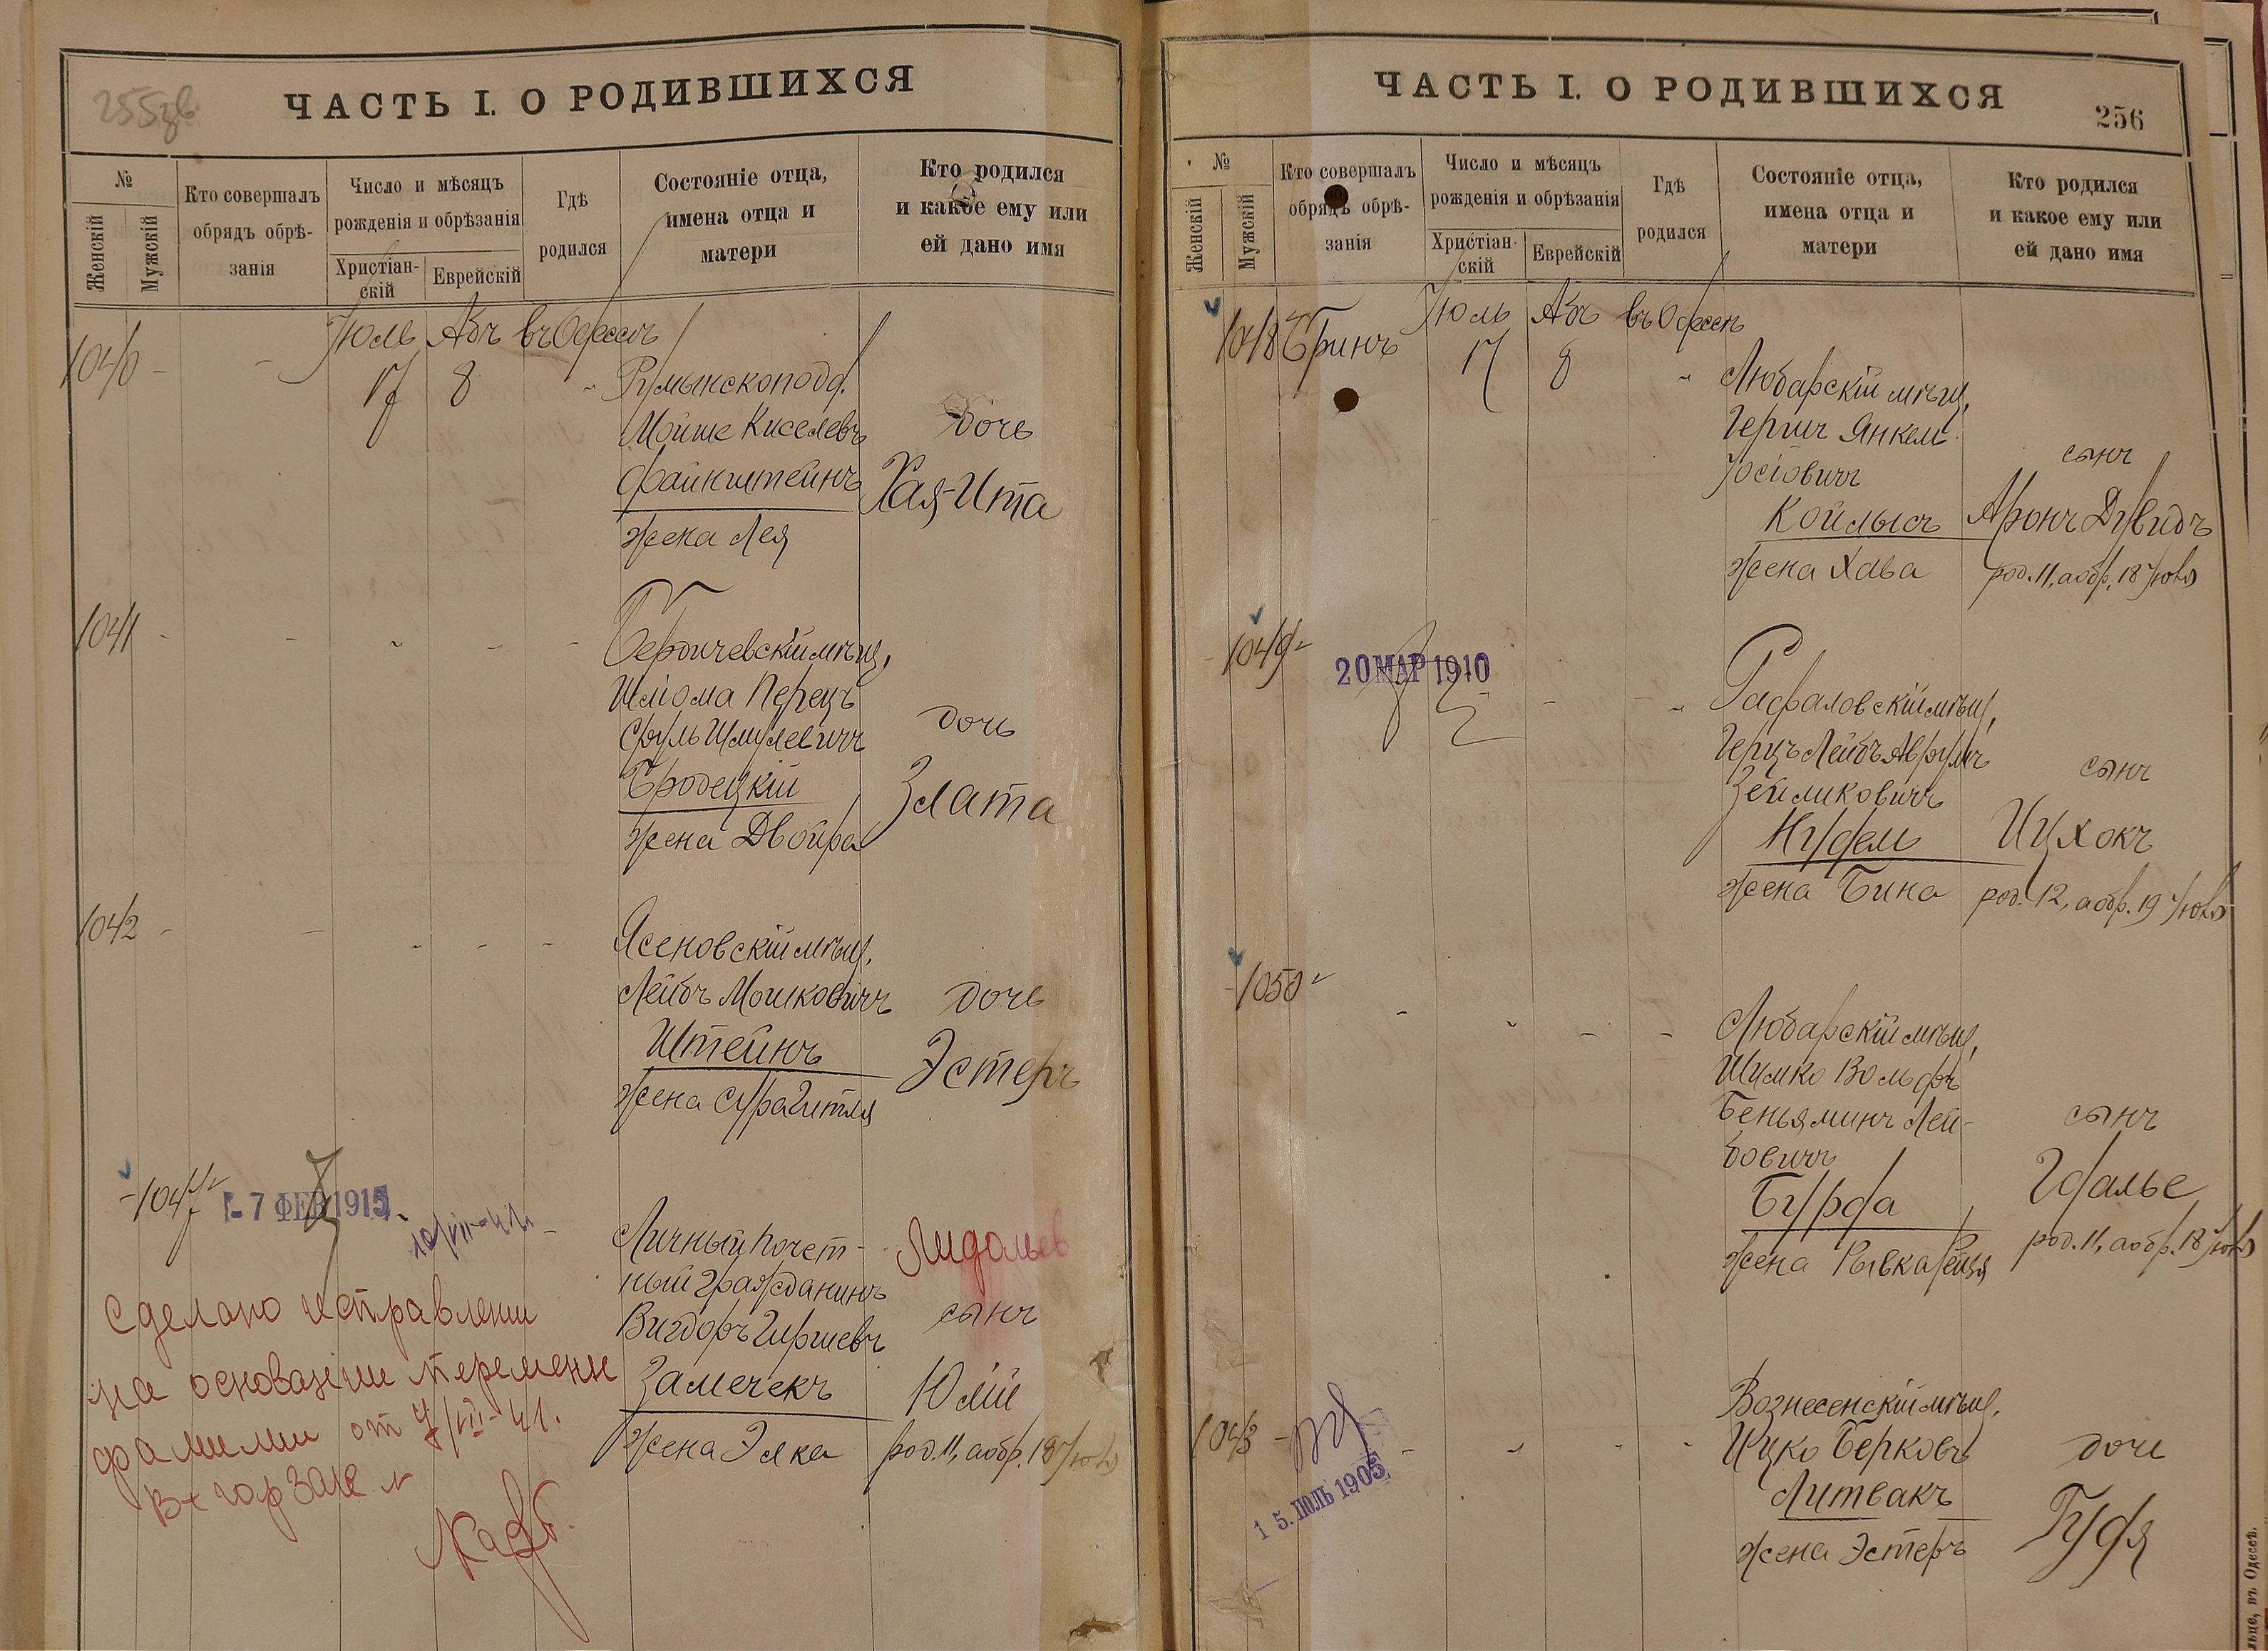 255 зв.
ЧАСТЬ I. О РОДИВШИХСЯ
№
Женскій
Мужскій
Кто совершалъ
обрядъ обрѣ-
занія
Число и мѣсяцъ
рожденія и обрѣзанія
Христіан-
скій
Еврейскій
Гдѣ
родился
Состояніе отца,
имена отца и
матери
Кто родился
и какое ему или
ей дано имя
Іюль Абъ въ Одессѣ
1040 - - 17 8 " Румынскоподд.
Мойше Киселевъ дочь
Файнштейнъ Хая-Ита
жена Лея
1041 - - - - - Бердичевскій мѣщ.
Шліома Перецъ
Сруль Шмулевичъ дочь
Бродецкій Злата
жена Двойра
1042 - - - - - Ясеновскій мѣщ.
Лейбъ Мошковичъ дочь
Штейнъ Эстеръ
жена Сура Гитля
1047
- 7 ФЕВ 1915
10/VII-41
Личный почет-
ный гражданинъ
Вигдоръ Гиршевъ сынъ
Замечекъ Юлій
жена Элка род. 11, а обр. 18 Іюля
Сделано исправлении
на основании перемени
фамилии от 7/VII-41.
в горзаге
ЧАСТЬ I. О РОДИВШИХСЯ
256
№
Женскій
Мужскій
Кто совершалъ
обрядъ обрѣ-
занія
Число и мѣсяцъ
рожденія и обрѣзанія
Христіан-
скій
Еврейскій
Гдѣ
родился
Состояніе отца,
имена отца и
матери
Кто родился
и какое ему или
ей дано имя
1048 Гринъ Іюль Абъ въ Одессѣ
17 8 " Любарскій мѣщ.
Гершъ Янкель
Іосіовичъ сынъ
Койлысъ Аронъ Дувидъ
жена Хава род. 11, а обр. 18 Іюля
1049
20 МАР 1910
Рафаловскій мѣщ.
Герцъ Лейбъ Аврумъ
Зейликовичъ сынъ
Нудель Ицхокъ
жена Бина род. 12, а обр. 19 Іюля
1050 - - - - Любарскій мѣщ.
Шулико Вольфъ
Беньяминъ Лей-
бовичъ сынъ
Бурда Гдалье
жена Рывка Рейзя род. 11, а обр. 18 Іюля
1043 - - - - - Вознесенскій мѣщ.
Ицко Берковъ дочь
Литвакъ Гудя
жена Эстеръ
15. ІЮЛЬ 1905